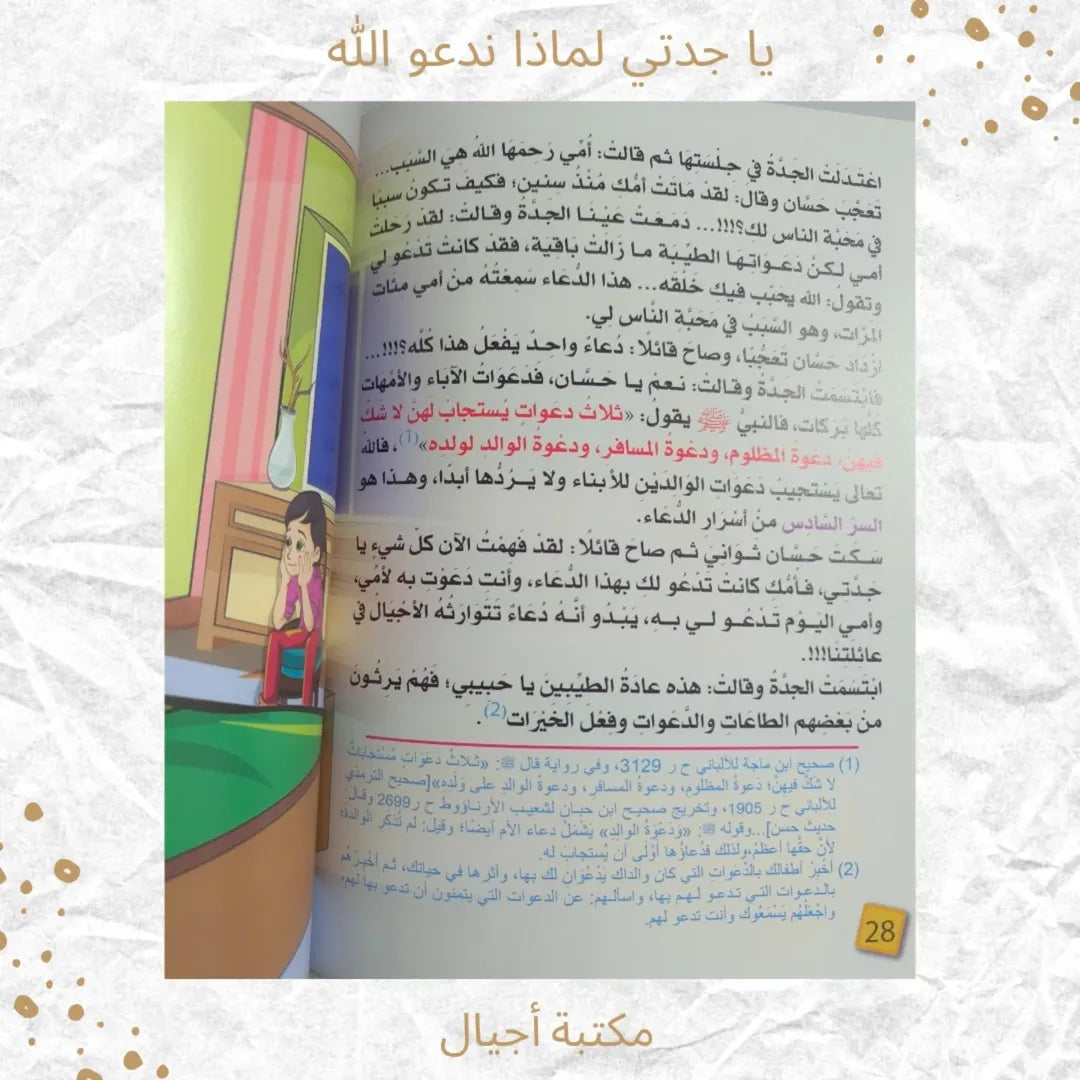 يا جدتي لماذا ندعو الله
اعْتدَلَتْ الجَدَّةُ في جِلْسَتِهَا ثم قالتْ: أُمِّي رَحِمَهَا اللهُ هِيَ السَّبب...
تَعَجَّبَ حَسَّان وقال: لقدْ مَاتَتْ أمُّكِ مُنْذُ سِنِين؛ فكيفَ تكونُ سببًا
في مَحَبَّة الناس لكِ؟!!!... دَمَعَتْ عَيْنَا الجدَّة وقالتْ: لقدْ رَحَلَتْ
أمي لكنْ دَعَوَاتِهَا الطيِّبَة ما زَالَتْ بَاقِيَة، فقدْ كانتْ تَدْعُو لي
وتقولُ: الله يحَبِّب فيكِ خَلْقَه... هذا الدُّعَاء سَمِعْتُهُ منْ أمي مئات
المرَّات، وهو السَّبَبُ في مَحَبَّةِ النَّاس لِي.
ازْدَادَ حَسَّان تَعَجُّبًا، وصاحَ قائلًا: دُعاءٌ واحِدٌ يَفْعَلُ هذا كُلَّه؟!!!...
فَابْتَسَمَتْ الجَدَّةُ وقالتْ: نعمْ يا حَسَّان، فَدَعَوَاتُ الآبَاء والأمَّهَات
كُلُّها بَرَكَات، فالنبيُّ ﷺ يقولُ: «ثلاثُ دعَواتٍ يُستجابُ لَهنَّ لا شكَّ
فيهنَّ، دعوةُ المظلوم، ودعْوةُ المسافر، ودعْوةُ الوالد لولده»(1)، فالله
تعالى يَسْتجِيبُ دَعَواتِ الوَالدَيْنِ للأبناء ولا يَرُدُّها أبدًا، وهذا هو
السرّ السَّادِس منْ أسْرَارِ الدُّعَاء.
سَكَتَ حَسَّان ثَوانِيَ ثم صاحَ قائلًا: لقدْ فَهِمْتُ الآن كلّ شيءٍ يا
جَدَّتِي، فأمُّكِ كانتْ تَدْعُو لك بهذا الدُّعَاء، وأنتِ دَعَوْتِ به لأمِّي،
وأمي اليَوْم تَدْعُو لي بهِ، يَبْدُو أنَّهُ دُعَاءٌ تَتَوارَثُهُ الأجْيالُ في
عائلَتِنَا!!!.
ابْتَسَمَتْ الجدَّةُ وقالتْ: هذه عادَةُ الطيِّبِينَ يا حَبيبِي؛ فَهُمْ يَرِثُونَ
منْ بَعْضِهم الطاعَاتِ والدَّعَواتِ وفِعْل الخَيْرَات(2).
(1) صحيح ابن ماجة للألباني ح ر 3129، وفي رواية قال ﷺ: «ثلاثُ دَعَوَاتٍ مُسْتَجاباتٌ
لا شكَّ فيهنَّ؛ دَعوةُ المظلوم، ودعوةُ المسافر، ودعوةُ الوالدِ على وَلَدِه»[صحيح الترمذي
للألباني ح ر 1905، وتخريج صحيح ابن حبان لشعيب الأرناؤوط ح ر2699 وقال:
حديث حسن]...وقوله ﷺ: «وَدَعْوَةُ الوالد» يَشْمَلُ دعاء الأم أيضًا؛ وقيل: لم تُذكر الوالدة؛
لأنَّ حقَّها أعظمُ،ولذلك فدُعاؤها أوْلَى أن يُستجابَ له.
(2) أَخْبِرْ أطفالك بالدَّعواتِ التي كان والداك يَدْعُوَان لك بها، وأثرها في حياتك، ثم أخْبِرْهُم
بالدعوات التي تدعو لهم بها، واسألهم: عن الدعوات التي يتمنون أن تدعو بها لهم،
واجْعَلْهُم يَسْمَعُوك وأنت تدعو لهم.
28
مكتبة أجيال